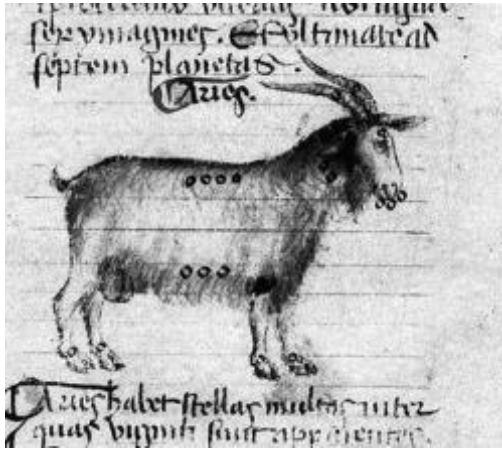 ymagines. Et ultimate ad
septem planetas.
Aries.
Aries habet stellas multas inter
quas viginti sunt apparentes.